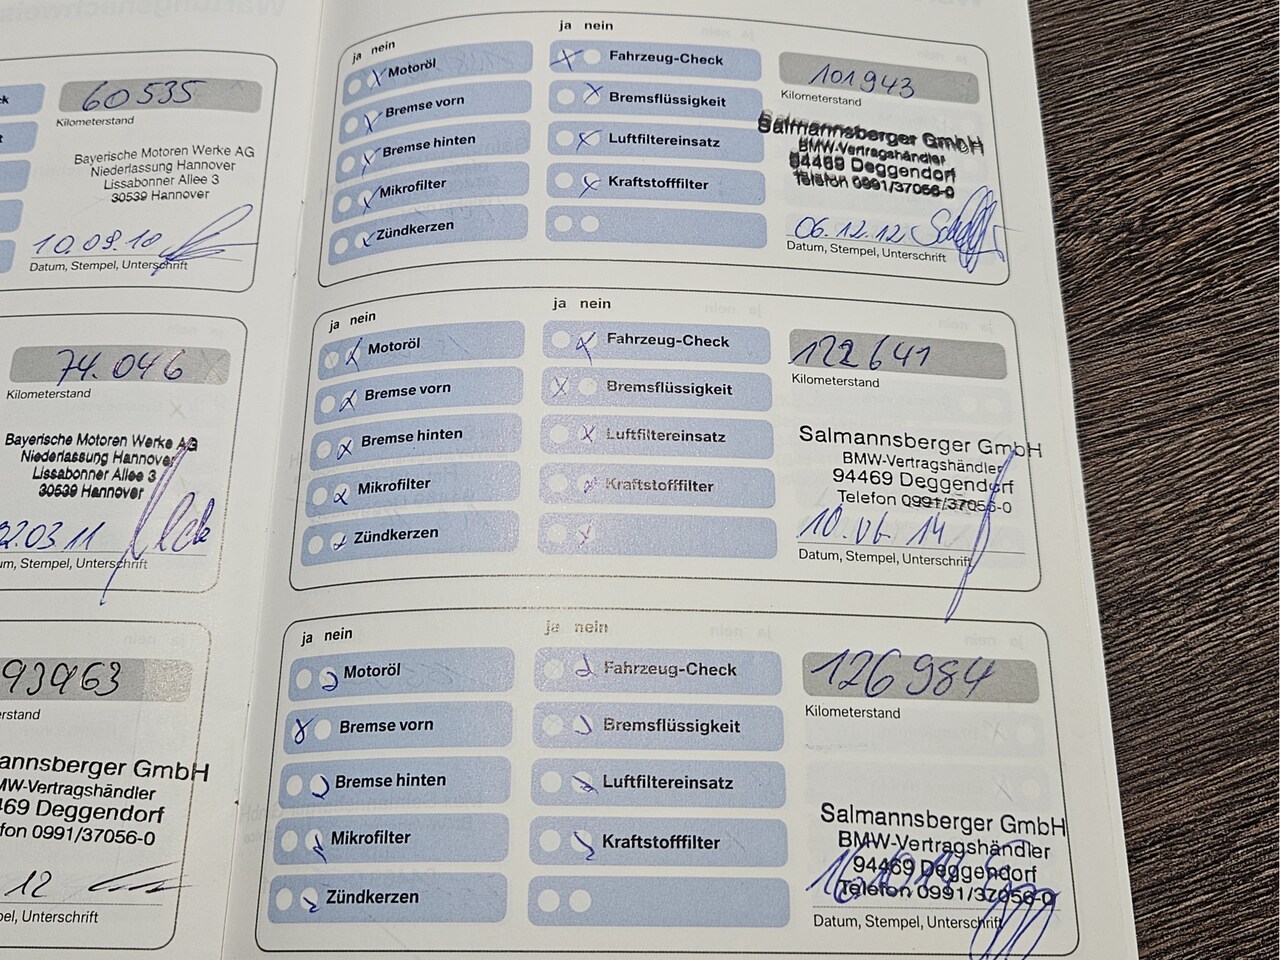 60535
Kilometerstand
Bayerische Motoren Werke AG
Niederlassung Hannover
Lissabonner Allee 3
30539 Hannover
10.09.10
Datum, Stempel, Unterschrift
74.046
Kilometerstand
Bayerische Motoren Werke AG
Niederlassung Hannover
Lissabonner Allee 3
30539 Hannover
2.03.11
um, Stempel, Unterschrift
93963
erstand
annsberger GmbH
MW-Vertragshändler
469 Deggendorf
fon 0991/37056-0
12
pel, Unterschrift
ja nein
Motoröl
Bremse vorn
Bremse hinten
Mikrofilter
Zündkerzen
ja nein
Fahrzeug-Check
Bremsflüssigkeit
Luftfiltereinsatz
Kraftstofffilter
101943
Kilometerstand
Salmannsberger GmbH
BMW-Vertragshändler
94469 Deggendorf
Telefon 0991/37056-0
06.12.12
Datum, Stempel, Unterschrift
ja nein
Motoröl
Bremse vorn
Bremse hinten
Mikrofilter
Zündkerzen
ja nein
Fahrzeug-Check
Bremsflüssigkeit
Luftfiltereinsatz
Kraftstofffilter
122641
Kilometerstand
Salmannsberger GmbH
BMW-Vertragshändler
94469 Deggendorf
Telefon 0991/37056-0
10.06.14
Datum, Stempel, Unterschrift
ja nein
Motoröl
Bremse vorn
Bremse hinten
Mikrofilter
Zündkerzen
ja nein
Fahrzeug-Check
Bremsflüssigkeit
Luftfiltereinsatz
Kraftstofffilter
126984
Kilometerstand
Salmannsberger GmbH
BMW-Vertragshändler
94469 Deggendorf
Telefon 0991/37056-0
Datum, Stempel, Unterschrift